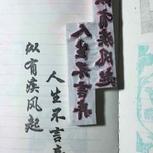 纵有疾风起
人生不言
人生不言弃
有疾风起